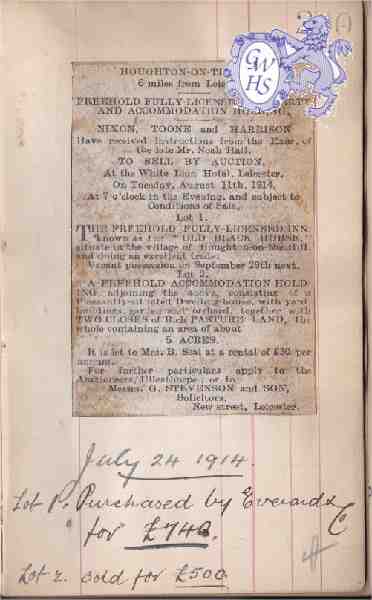 HOUGHTON-ON-T
6 miles from
FREEHOLD FULLY-LICENSED
AND ACCOMMODATION
NIXON, TOONE and HARRISON
Have received instructions from the Exor. of
the late Mr. Noah Hall,
TO SELL BY AUCTION,
At the White Lion Hotel, Leicester,
On Tuesday, August 11th, 1914,
At 7 o'clock in the Evening, and subject to
Conditions of Sale,
Lot 1.
THE FREEHOLD FULLY-LICENSED INN
known as the "OLD BLACK HORSE,"
situate in the village of Houghton-on-the-Hill
and doing an excellent trade.
Vacant possession on September 29th next.
Lot 2.
A FREEHOLD ACCOMMODATION HOLD
ING adjoining the above, consisting of a
Pleasantly-situated Dwelling-house, with yard
buildings, garden and orchard, together with
TWO CLOSES of Rich PASTURE LAND, the
whole containing an area of about
5 ACRES.
It is let to Mrs. B. Seal at a rental of £30 per
annum.
For further particulars apply to the
Auctioneers, Ullesthorpe; or to
Messrs. G. STEVENSON and SON,
Solicitors,
New street, Leicester.
GWHS
July 24 1914.
Lot 1. Purchased by Everard & Co
for £740.
Lot 2. Sold for £500